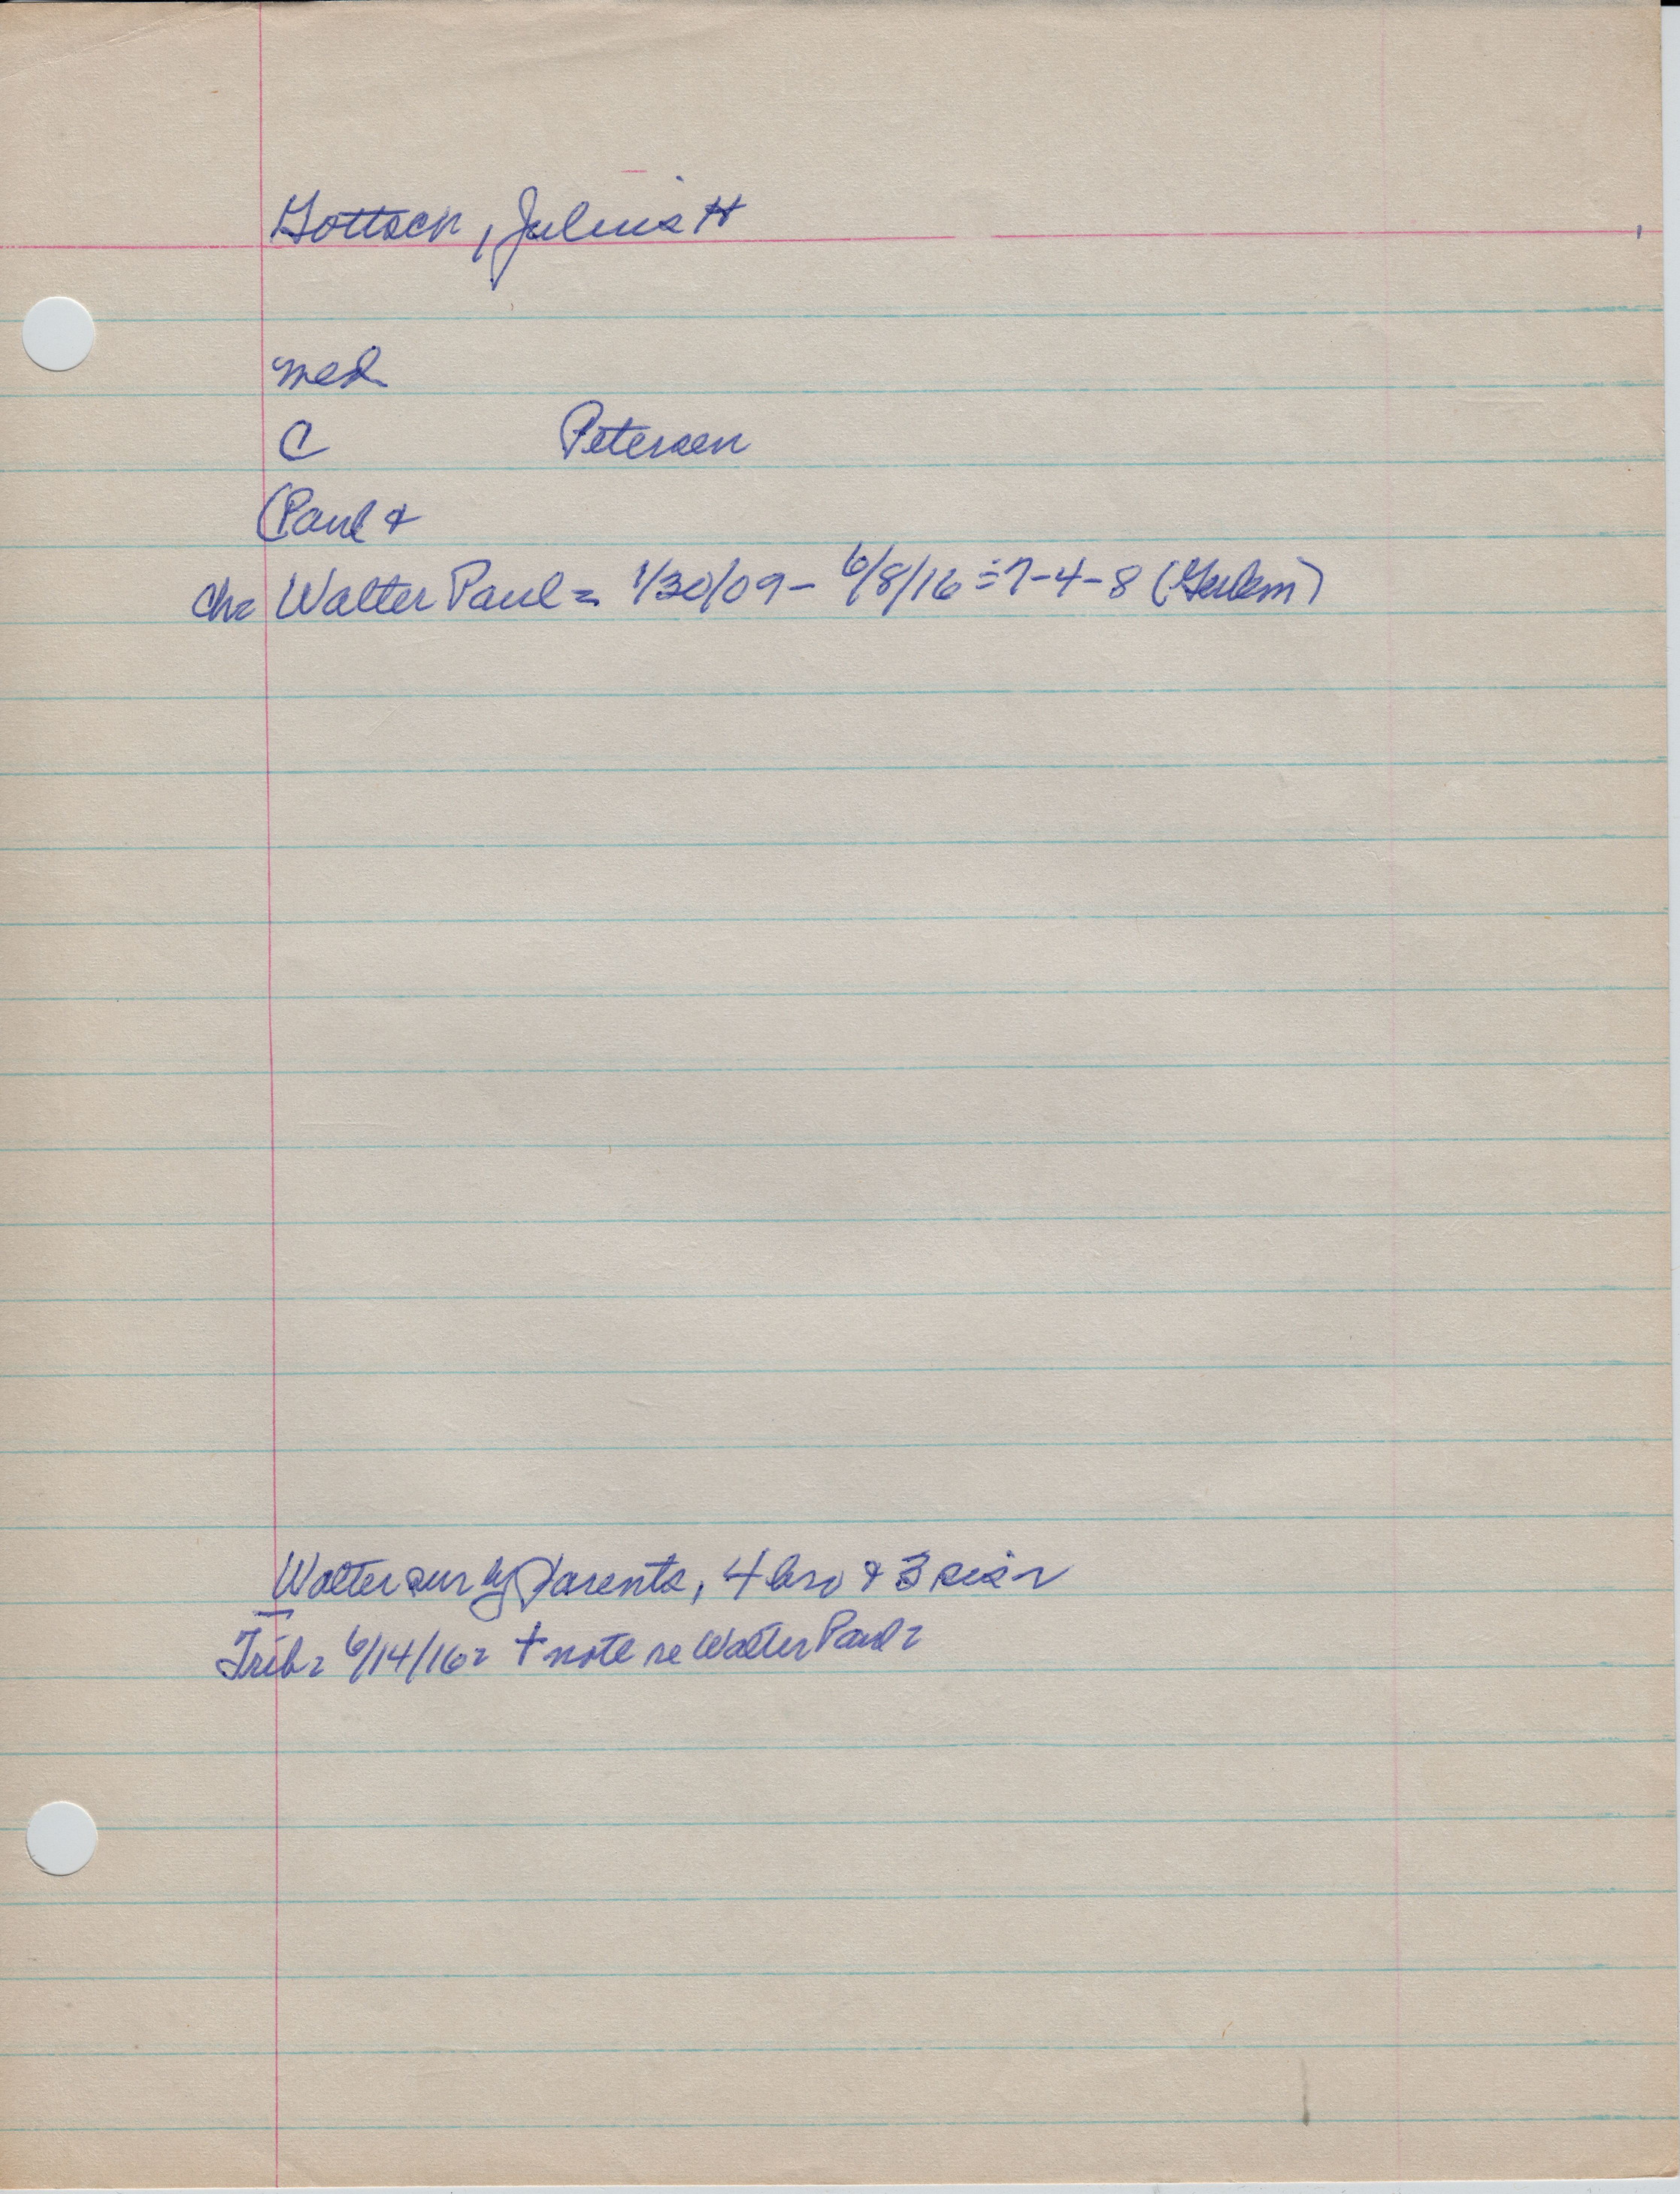 Gottsch, Julius H
med
C Petersen
(Paul &
Ch= Walter Paul = 1/30/09 - 6/8/16 = 7-4-8
Walter sur by parents, 4 bro & 3 sis
Trib = 6/14/16 = + note re Walter Paul =